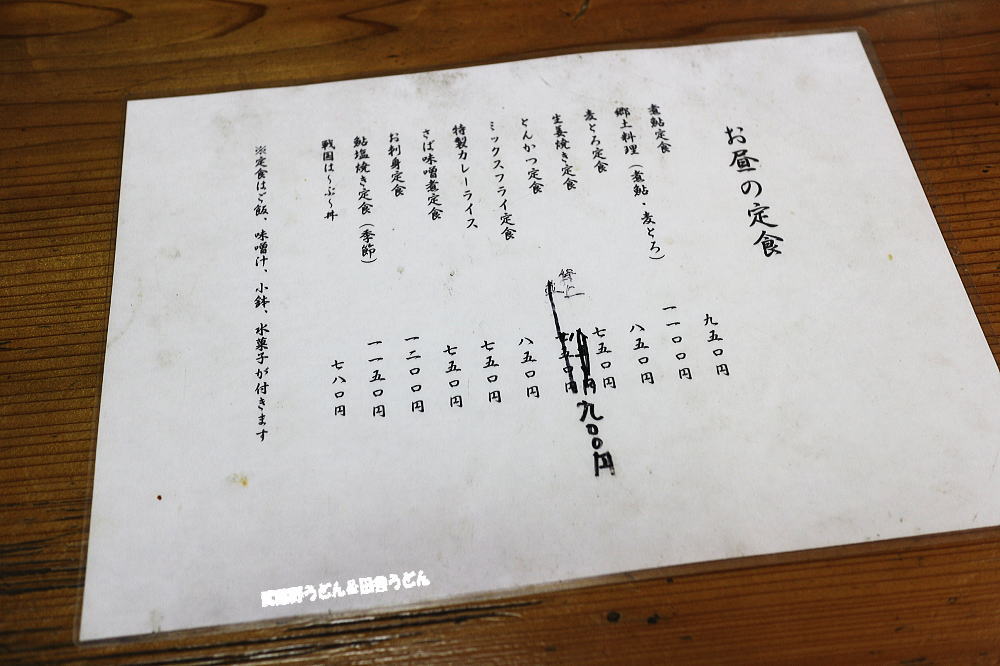 お昼の定食
煮鮎定食 九五〇円
郷土料理（煮鮎・麦とろ） 一一〇〇円
麦とろ定食 八五〇円
生姜焼き定食 七五〇円
とんかつ定食 七五〇円 九〇〇円
ミックスフライ定食 八五〇円
特製カレーライス 七五〇円
さば味噌煮定食 七五〇円
お刺身定食 一二〇〇円
鮎塩焼き定食（季節） 一一五〇円
戦国は〜ぶ〜丼 七八〇円
※定食はご飯、味噌汁、小鉢、水菓子が付きます
武蔵野うどん&田舎うどん